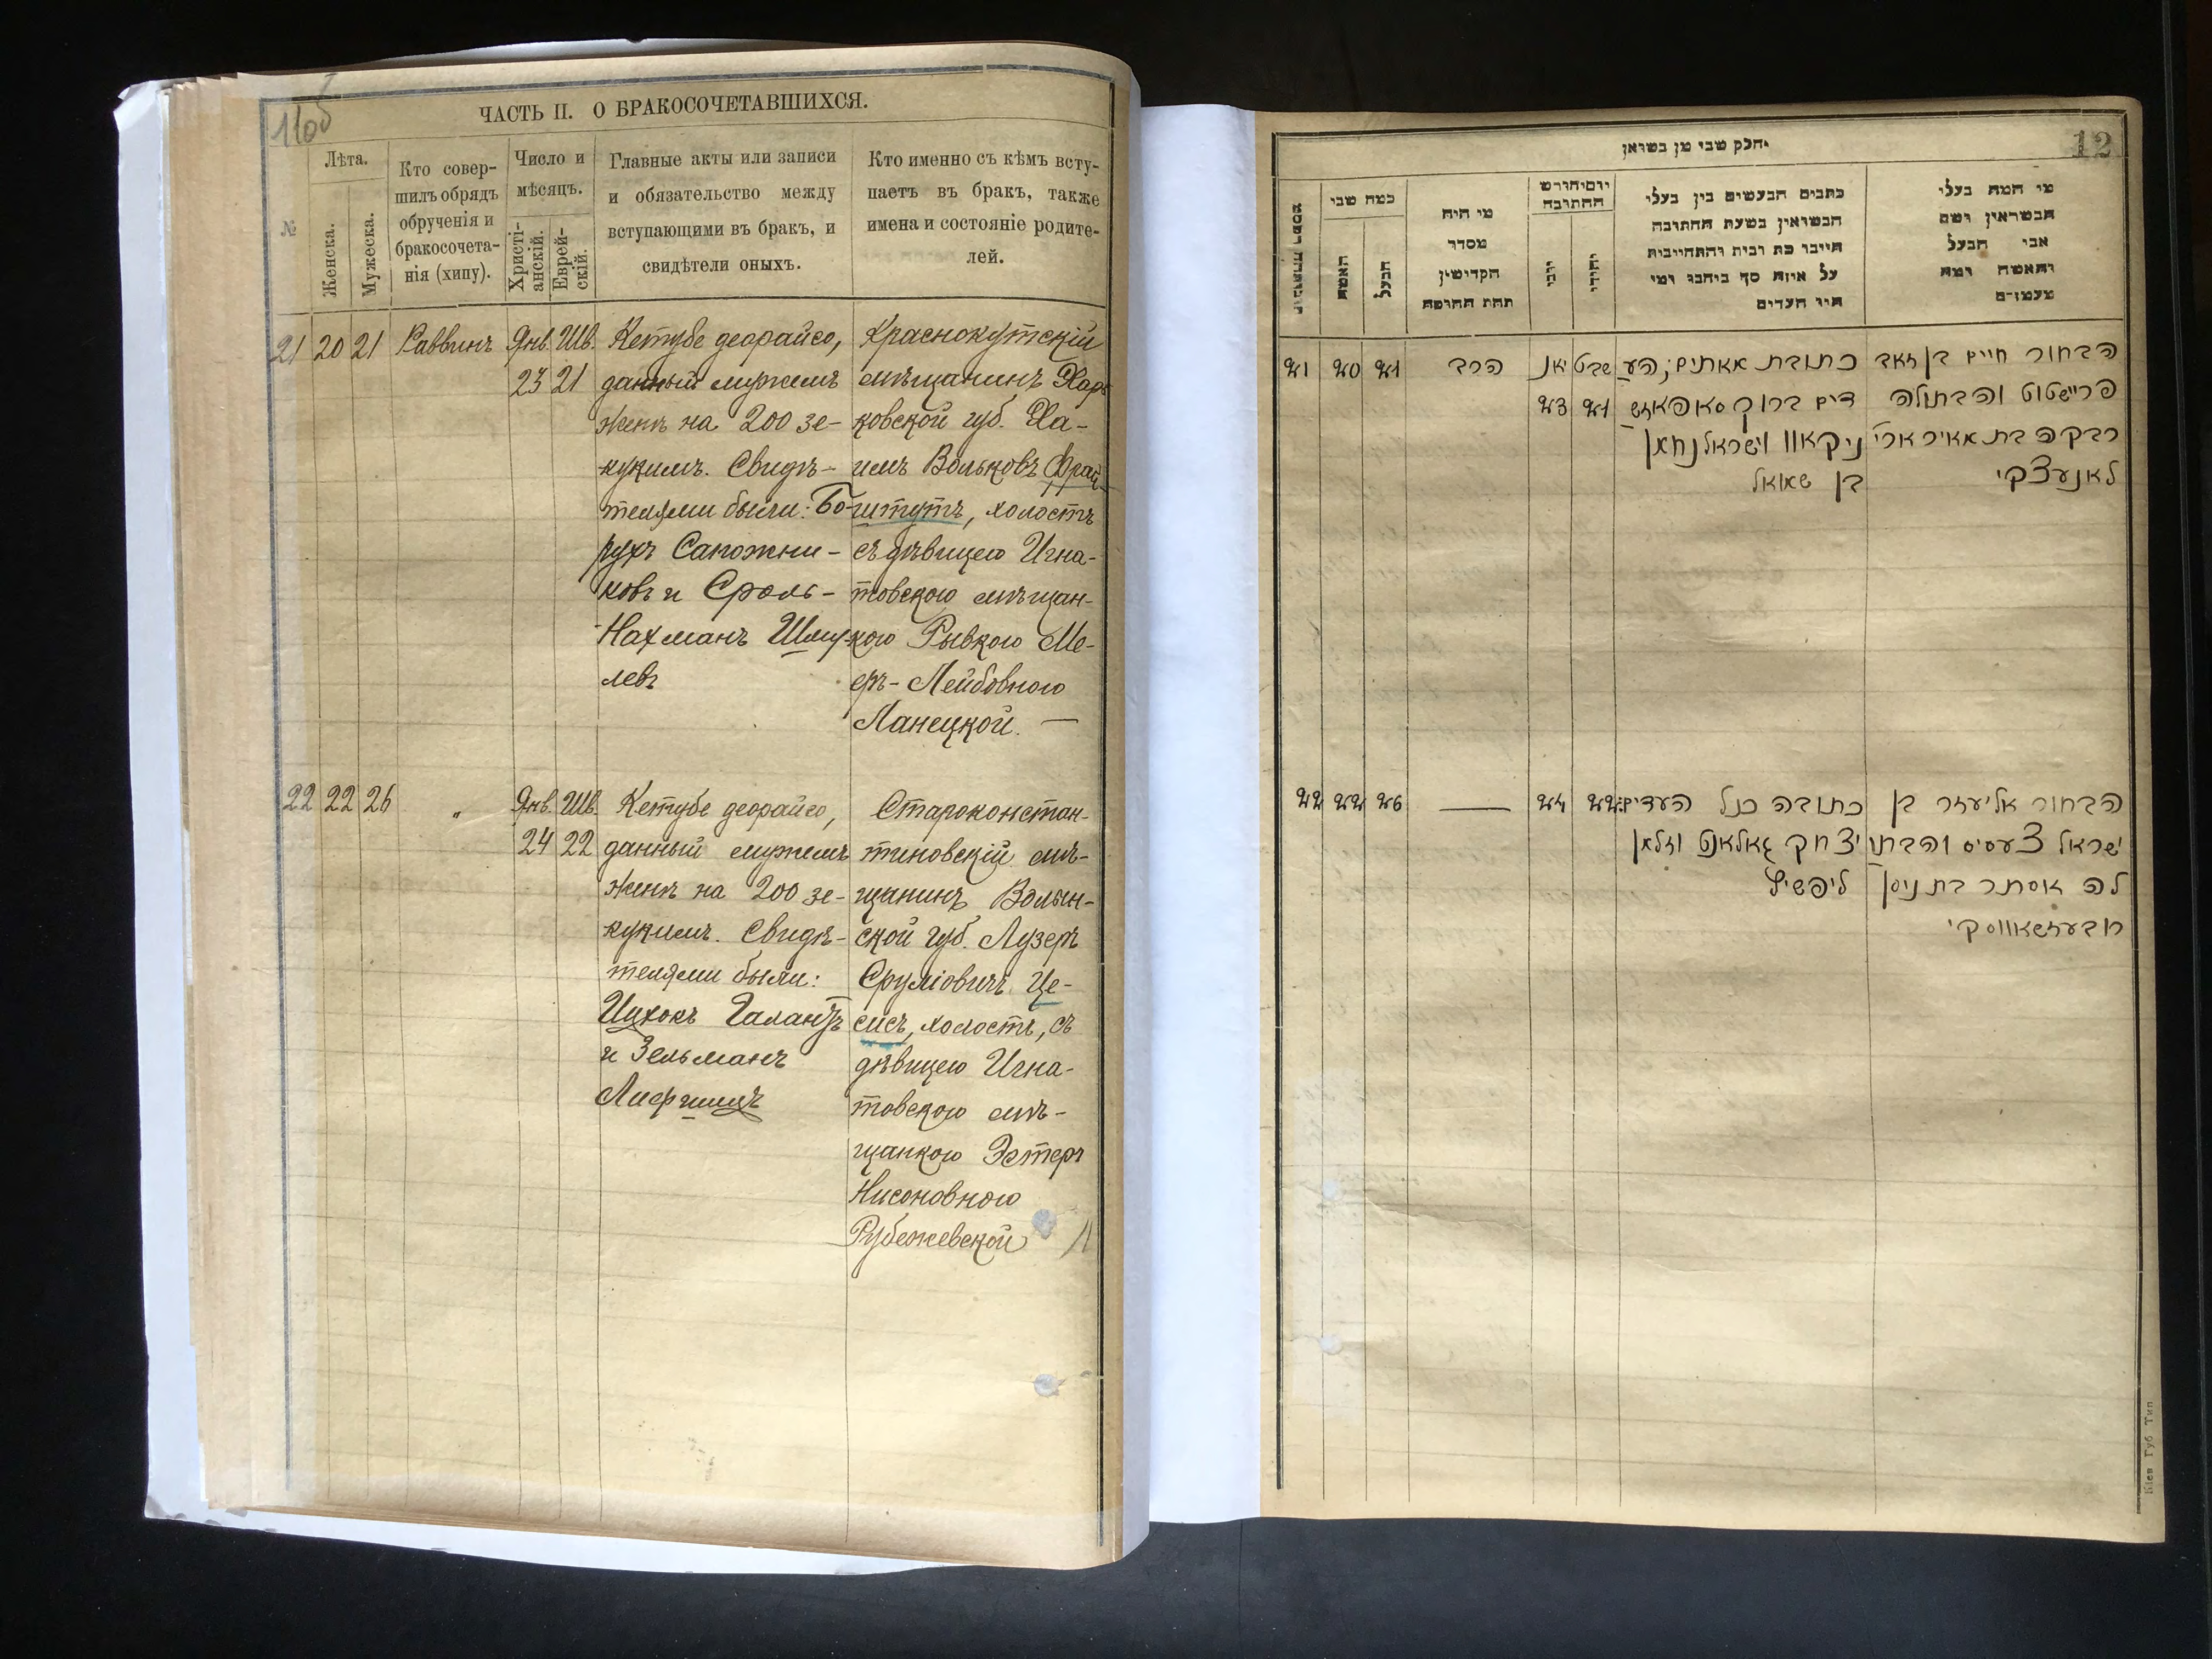 11об
ЧАСТЬ II. О БРАКОСОЧЕТАВШИХСЯ.
№
Лѣта.
Женска.
Мужеска.
Кто совер-
шилъ обрядъ
обрученія и
бракосочета-
нія (хипу).
Число и
мѣсяцъ.
Христі-
анскій.
Еврей-
скій.
Главные акты или записи
и обязательство между
вступающими въ бракъ, и
свидѣтели оныхъ.
Кто именно съ кѣмъ всту-
паетъ въ бракъ, также
имена и состояніе родите-
лей.
21 20 21 Раввинъ Янв. Шв.
23 21
Кетубе деорайсо,
данный мужемъ
женѣ на 200 зе-
кукимъ. Свидѣ-
телями были: Бо-
рухъ Сапожни-
ковъ и Сроль-
Нахманъ Шму-
левъ
Краснокутскій
мѣщанинъ Харь
ковской губ. Ха-
имъ Вольковъ Фрай-
штутъ, холостъ
съ дѣвицею Игна-
товскою мѣщан-
кою Рывкою Ме-
еръ-Лейбовною
Ланецкой. —
22 22 26 " Янв. Шв.
24 22
Кетубе деорайсо,
данный мужемъ
женѣ на 200 зе-
кукимъ. Свидѣ-
телями были:
Ицхокъ Галантъ
и Зельманъ
Лифшицъ
Староконстан-
тиновскій мѣ-
щанинъ Волын-
ской губ. Лузеръ
Сруліовичъ Це-
сисъ, холостъ, съ
дѣвицею Игна-
товскою мѣ-
щанкою Эстеръ
Нисоновною
Рубежевской
12
חלק שני מן נשואין
מי המה בעלי
הנשואין ושם
אבי הבעל
והאשה ומה
מעמדם
כתבים הנעשים בין בעלי
הנשואין בשעת החתונה
חייבו כת ובית והתחייבות
על איזה סך ביחבו ומי
היו העדים
יום וחודש
החתונה
יהודי
יוני
מי היה
מסדר
הקדושין
תחת החופה
כמה שני
הבעל
האשה
הבחור חיים בן זאב
פריישטוט והבתולה
רבקה בת מאיר ארי
לאנעצקי
כתובת מאתים; הע
דים ברוך סאפאזש
ניקאוו וישראל נחמן
בן שמואל
שבט יאנ
21 23
הרב
21 20 21
הבחור אליעזר בן
ישראל צעסיס והבתו
לה אסתר בת ניסן
רובעזשאווסקי
כתובה כנל העדים:
יצחק גאלאנט וזלמן
ליפשיץ
22 24 — 26 22 22
Кіев Губ Тип